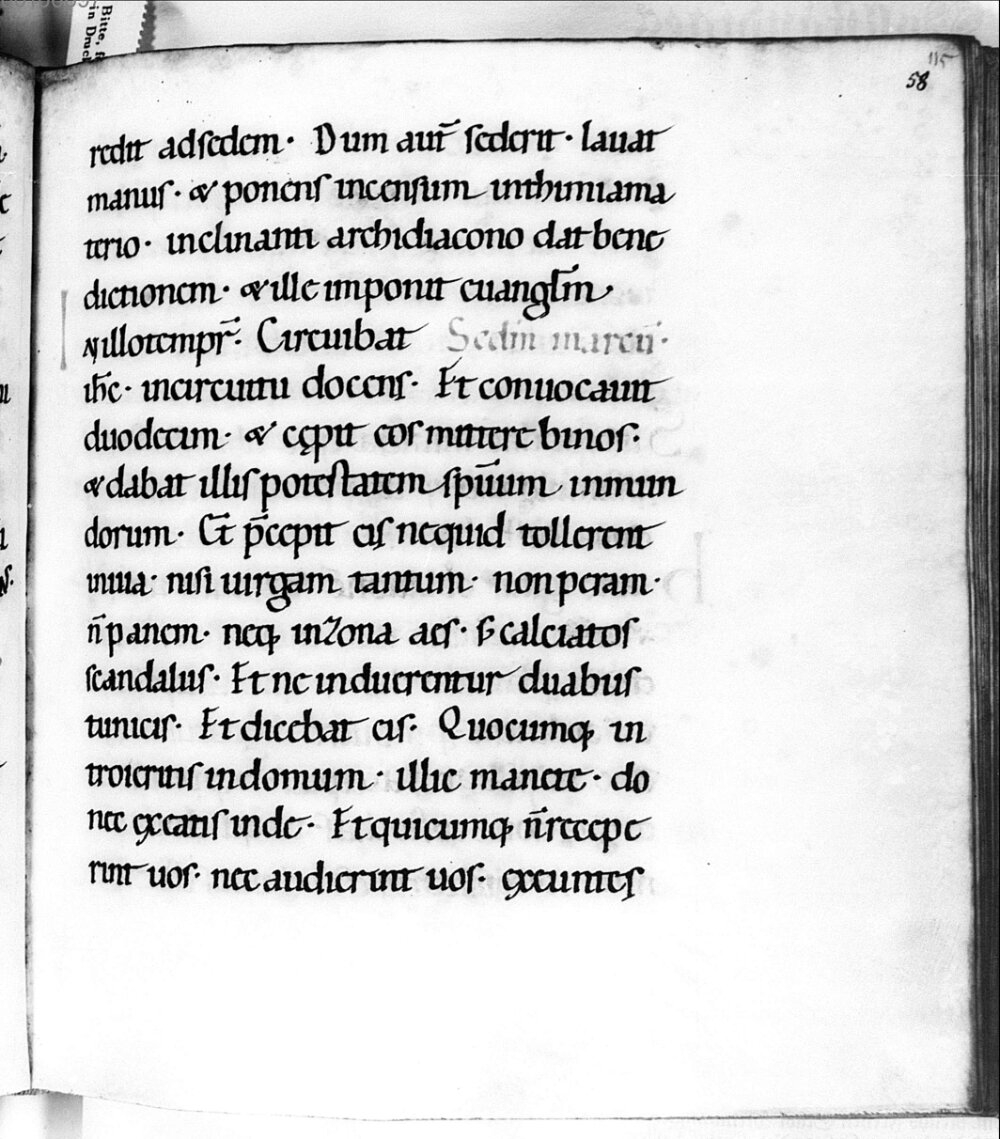 Bitte,
in Druc
115
58
redit adsedem· Dum aut̄ sederit· lauat
manus· & ponens incensum inthimiama
terio· inclinanti archidiacono dat bene
dictionem· & ille imponit euangl̄m·
N illo tempr̄· Circuibat Scd̄m marcū·
ih̄c· incircuitu docens· Et conuocauit
duodecim· & cępit eos mittere binos·
& dabat illis potestatem spūum inmun
dorum· Et p̄cepit eis nequid tollerent
inuia· nisi uirgam tantum· non peram·
n̄ panem· neq; inzona aes· s; calciatos
scandalus· Et ne induerentur duabus
tunicis· Et dicebat eis· Quocumq; in
troieritis indomum· illic manete· do
nec exeatis inde· Et quicumq; n̄ recepe
rint uos· nec audierint uos· exeuntes